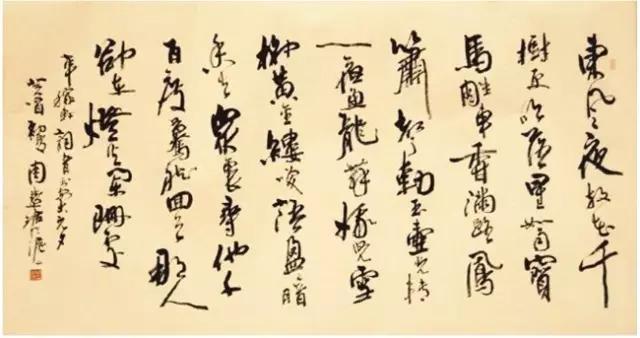 東風夜放花千
樹更吹落星如雨寶
馬雕車香滿路鳳
簫聲動玉壺光轉
一夜魚龍舞蛾兒雪
柳黃金縷笑語盈暗
香去衆裏尋他千
百度驀然回首那人
卻在燈火闌珊處
辛稼軒詞青玉案元夕